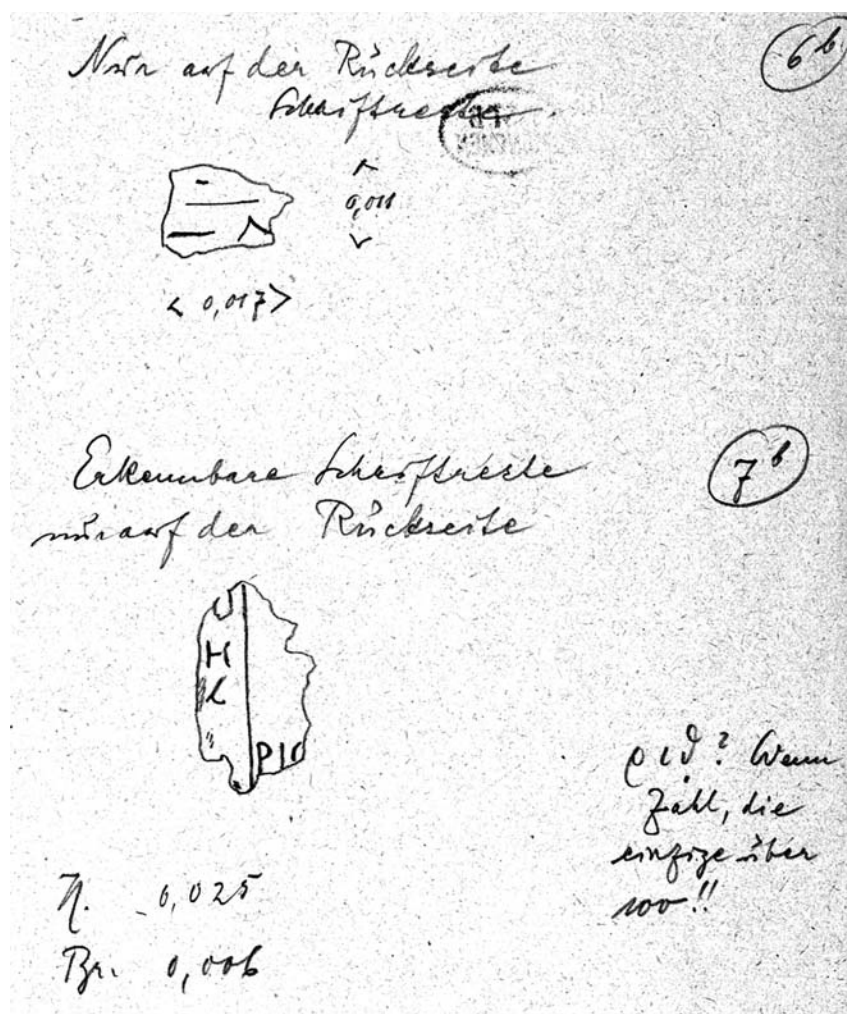 Nur auf der Rückseite
Schriftreste.
6b
0,011
< 0,017 >
Erkennbare Schriftreste
nur auf der Rückseite
7b
H
PIC
ϱιϑ? Wenn
Zahl, die
einzige über
100!!
H. 0,025
Br. 0,006